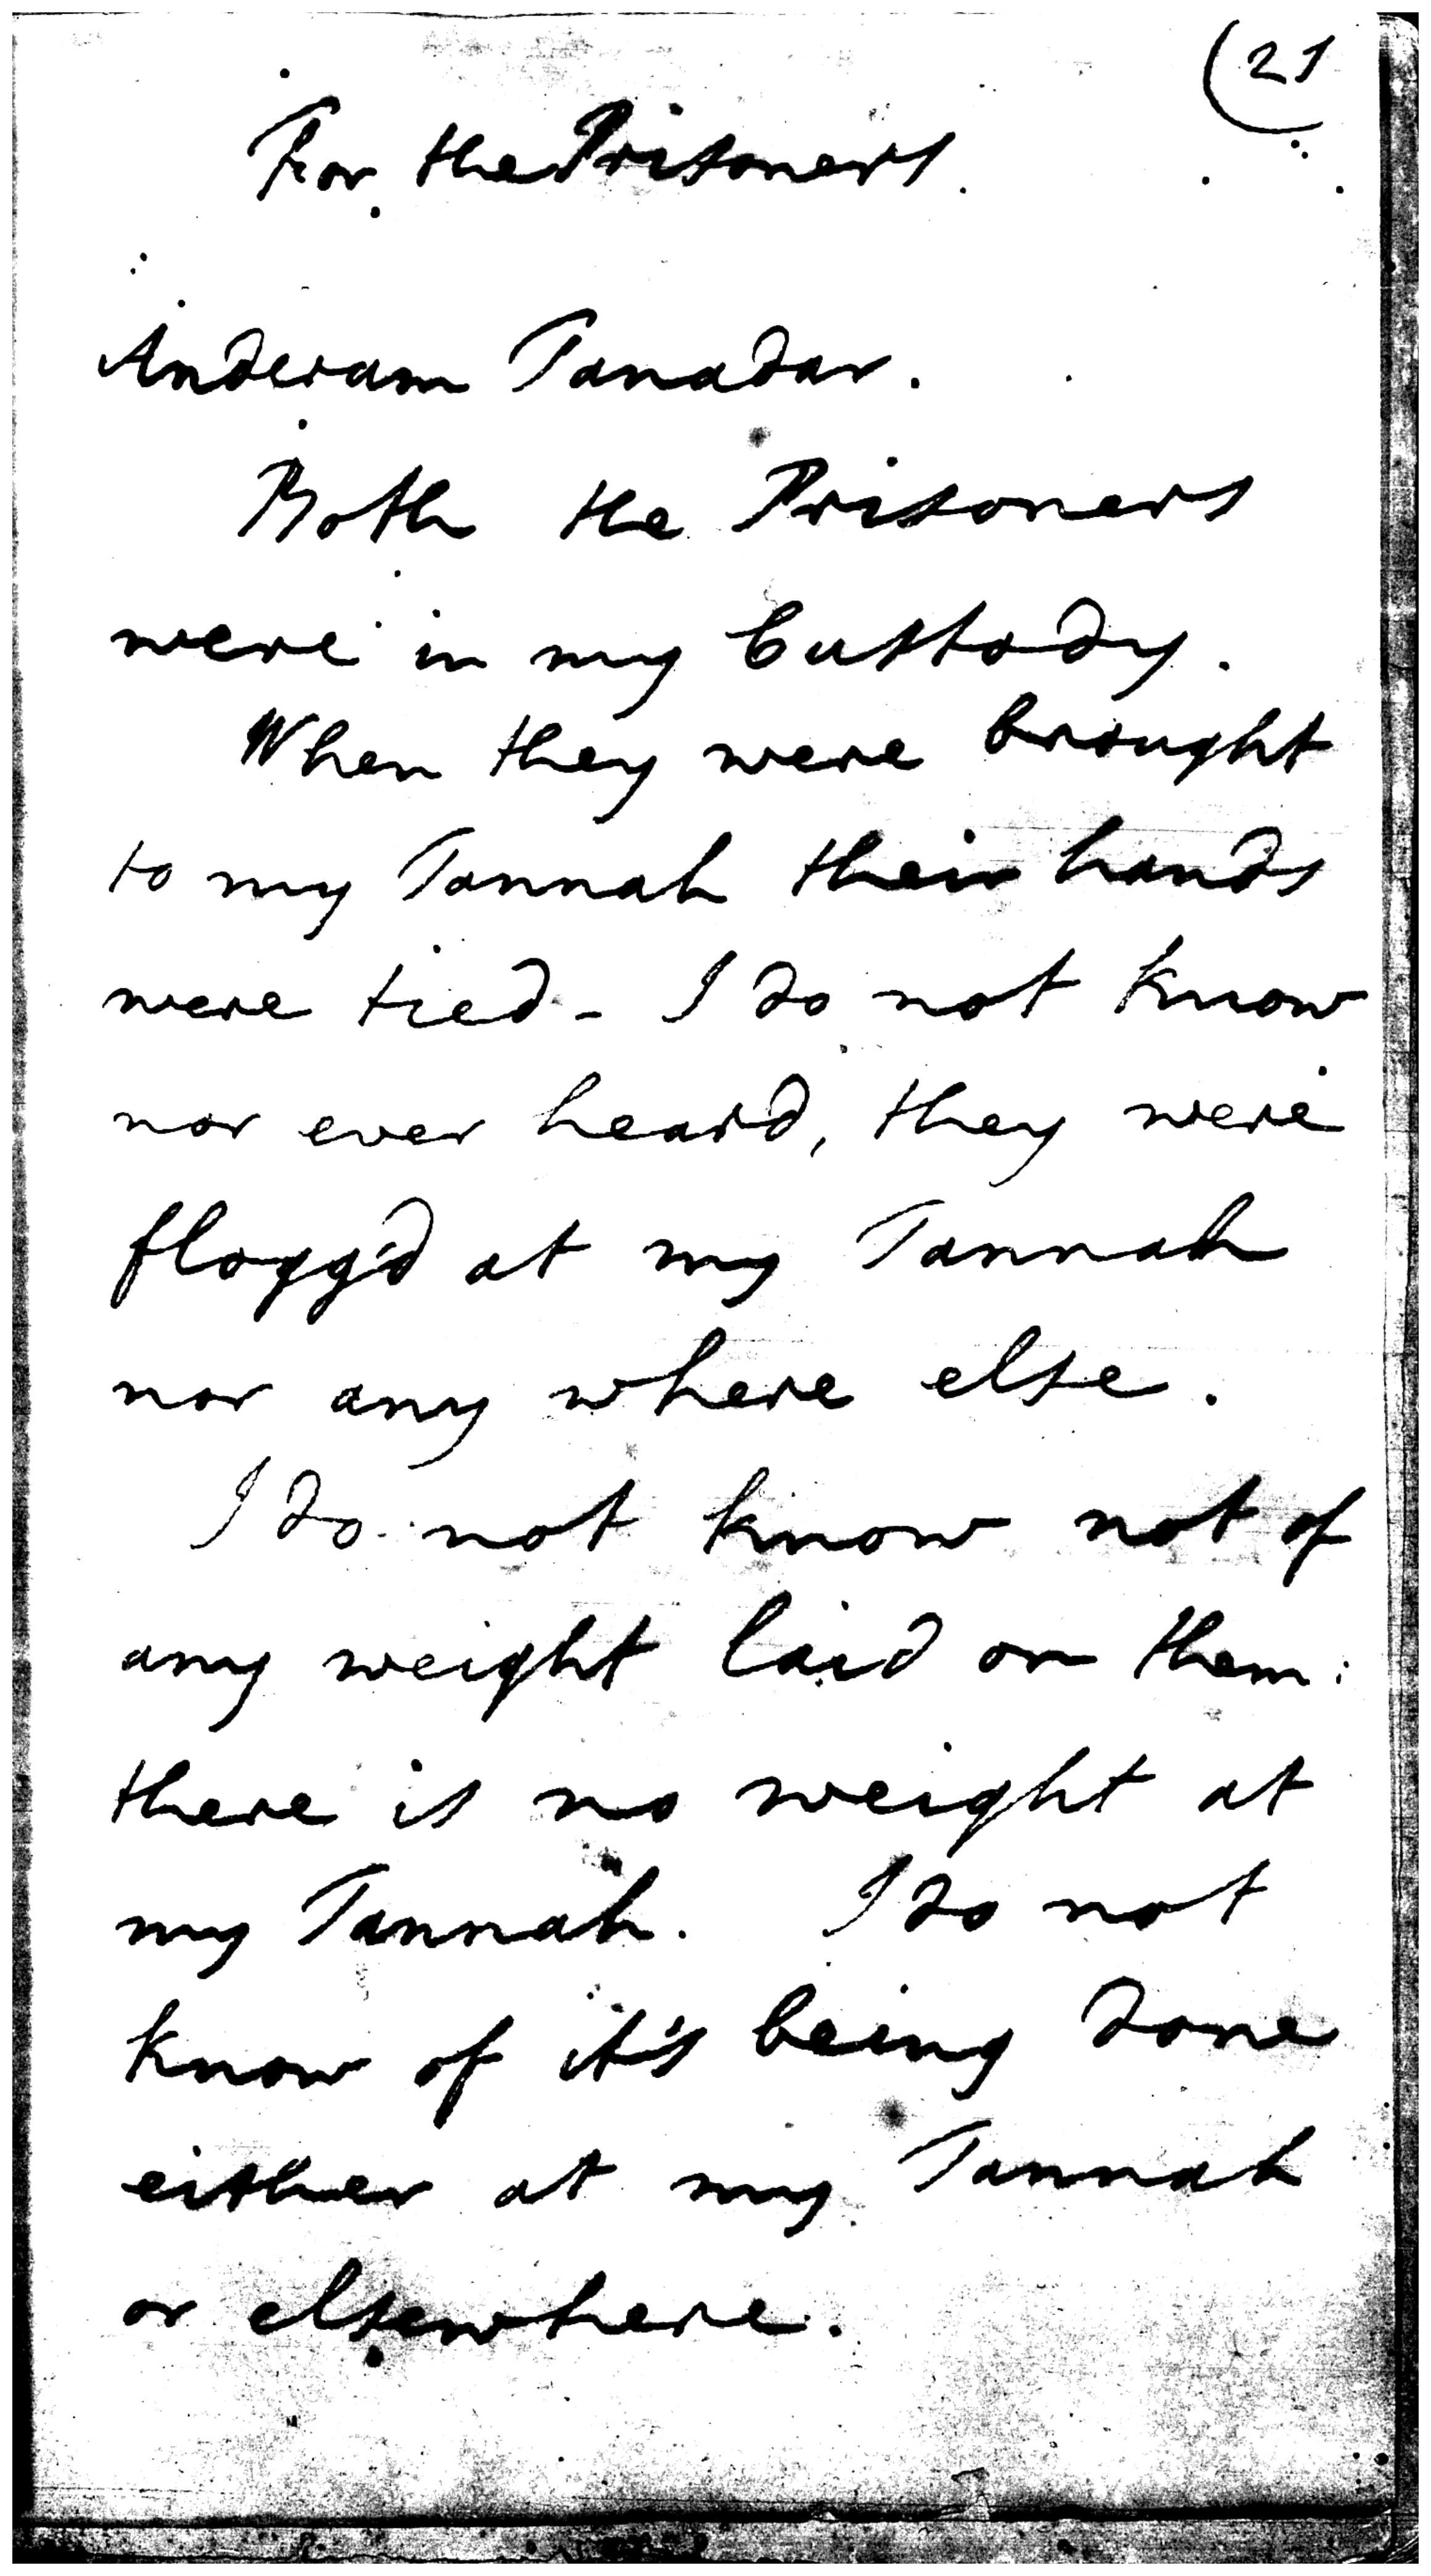 (21
For the Prisoners.
Anderam Tanadar.
Both the Prisoners
were in my Custody.
When they were brought
to my Tannah their hands
were tied - I do not know
nor ever heard, they were
flogg'd at my Tannah
nor any where else.
I do not know not of
any weight laid on them:
there is no weight at
my Tannah. I do not
know of it's being done
either at my Tannah
or elsewhere.